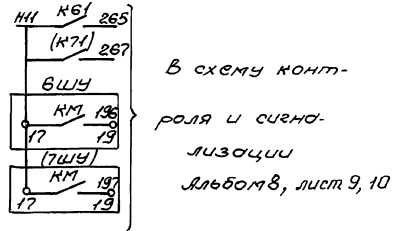 Н11 К61 265
(К71) 267
6ШУ
КМ 196
17 19
(7ШУ)
КМ 197
17 19
В схему конт-
роля и сигна-
лизации
Альбом 8, лист 9, 10